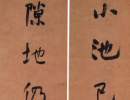 小池已
隙地仍